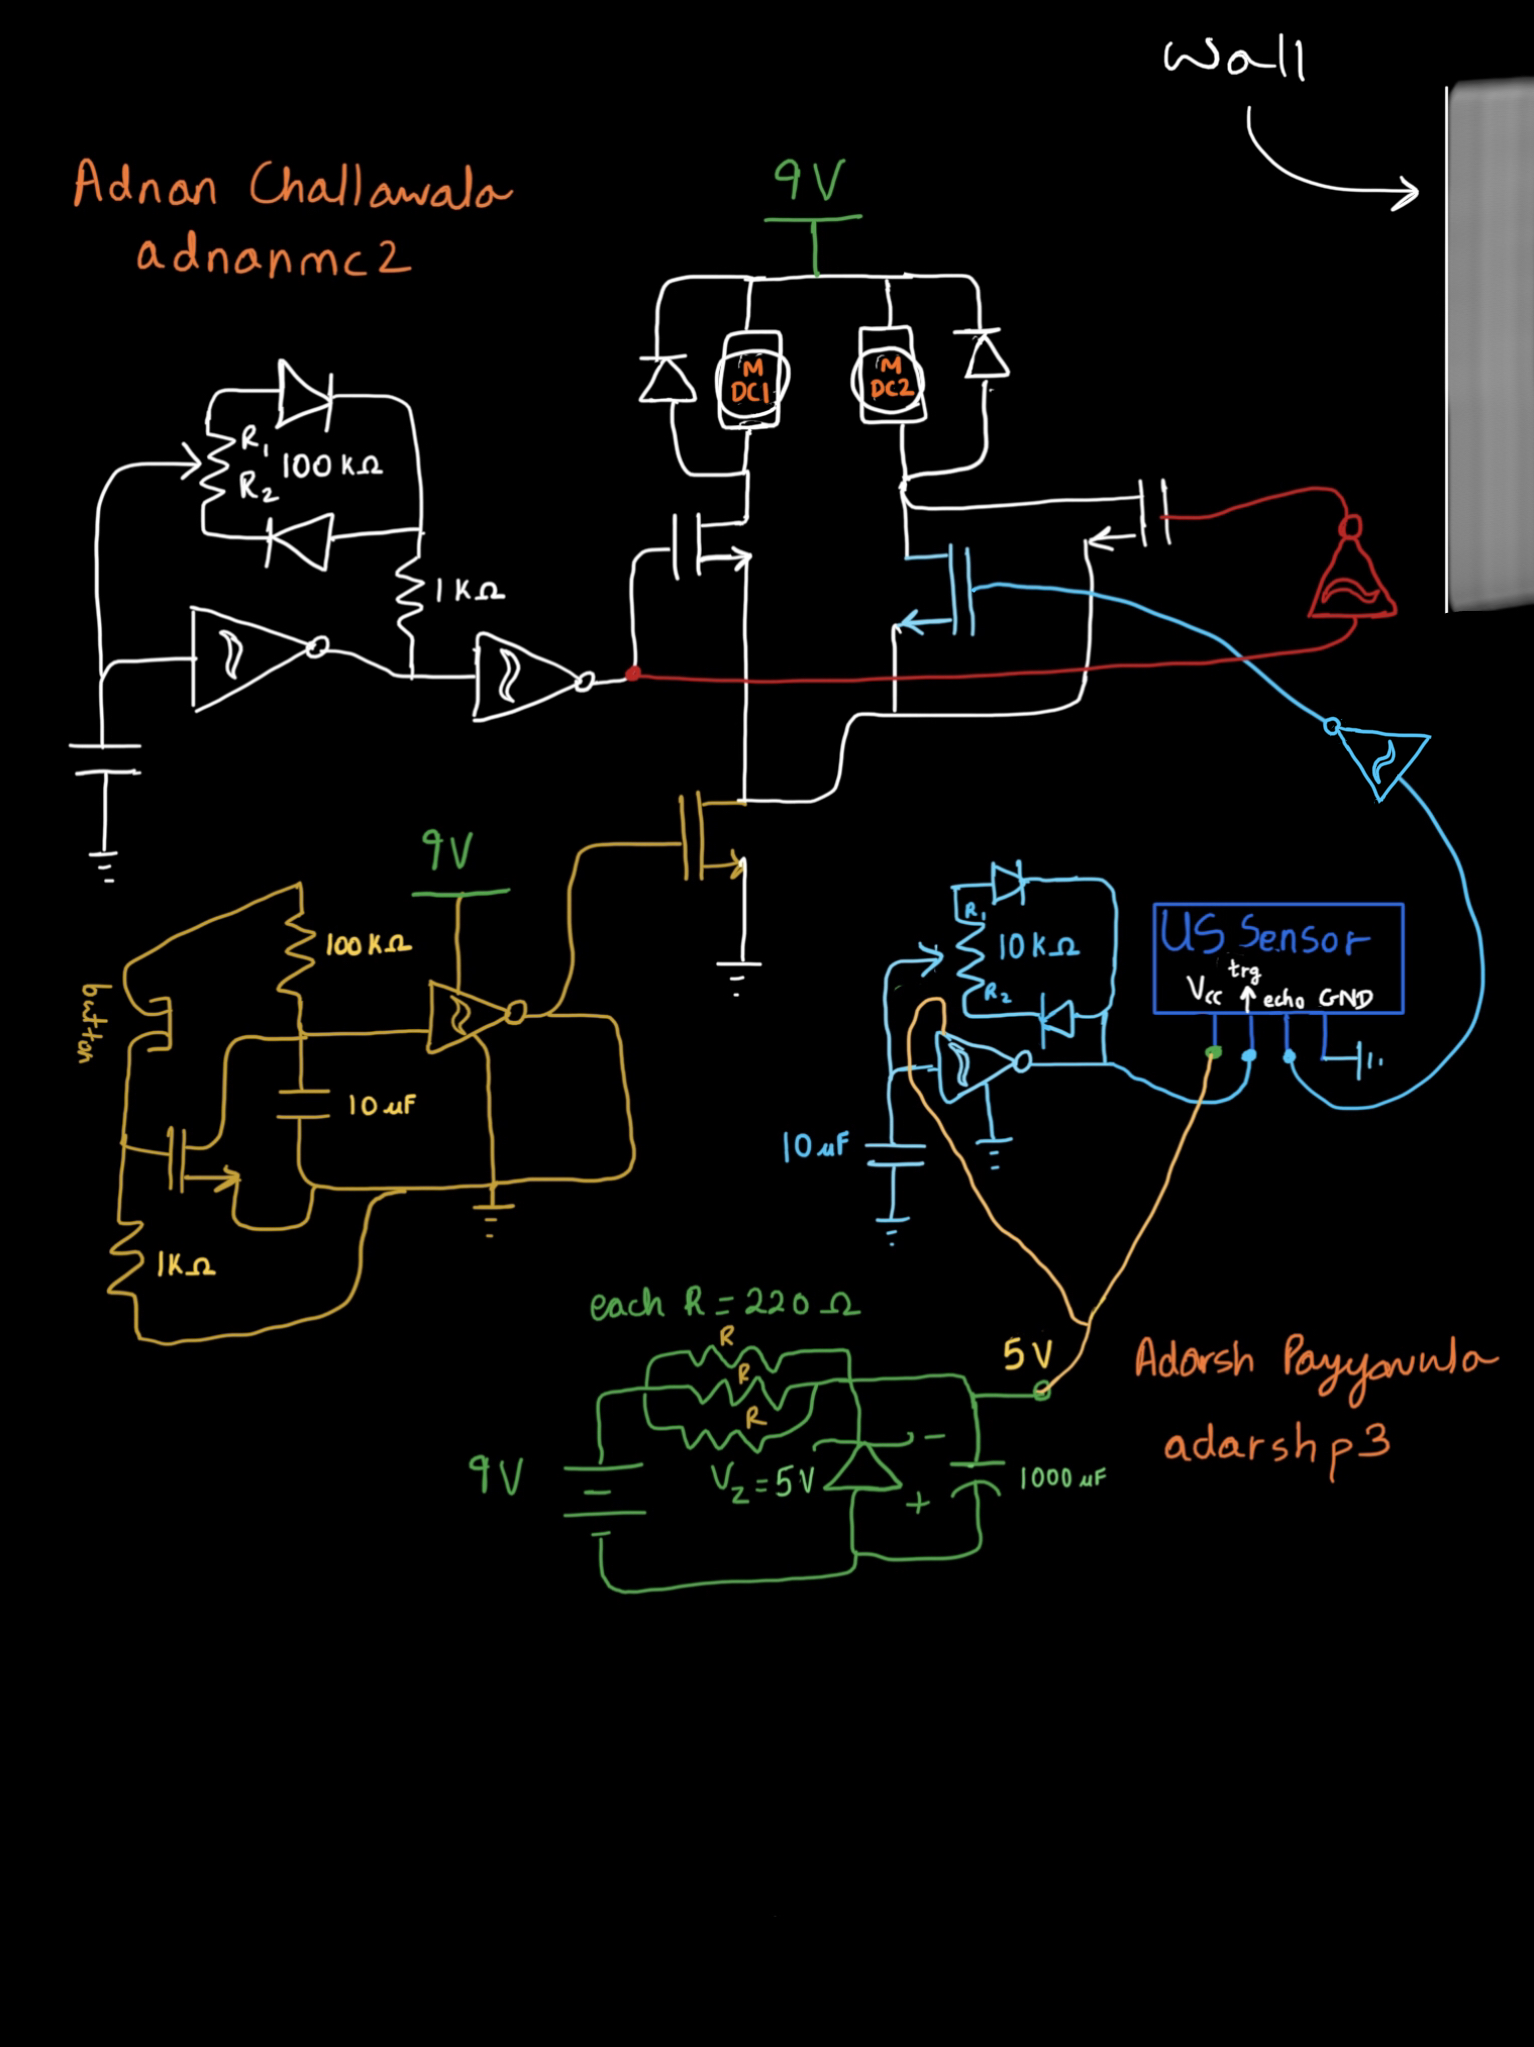 Wall
Adnan Challawala
adnanmc2
9V
M
DC1
M
DC2
R1
R2
100 KΩ
1 KΩ
9V
100 KΩ
button
10 uF
1KΩ
R1
10 KΩ
R2
10 uF
US Sensor
Vcc trg echo GND
each R = 220 Ω
R
R
R
9V
Vz = 5V
-
+
1000 uF
5V
Adarsh Payyavula
adarshp3